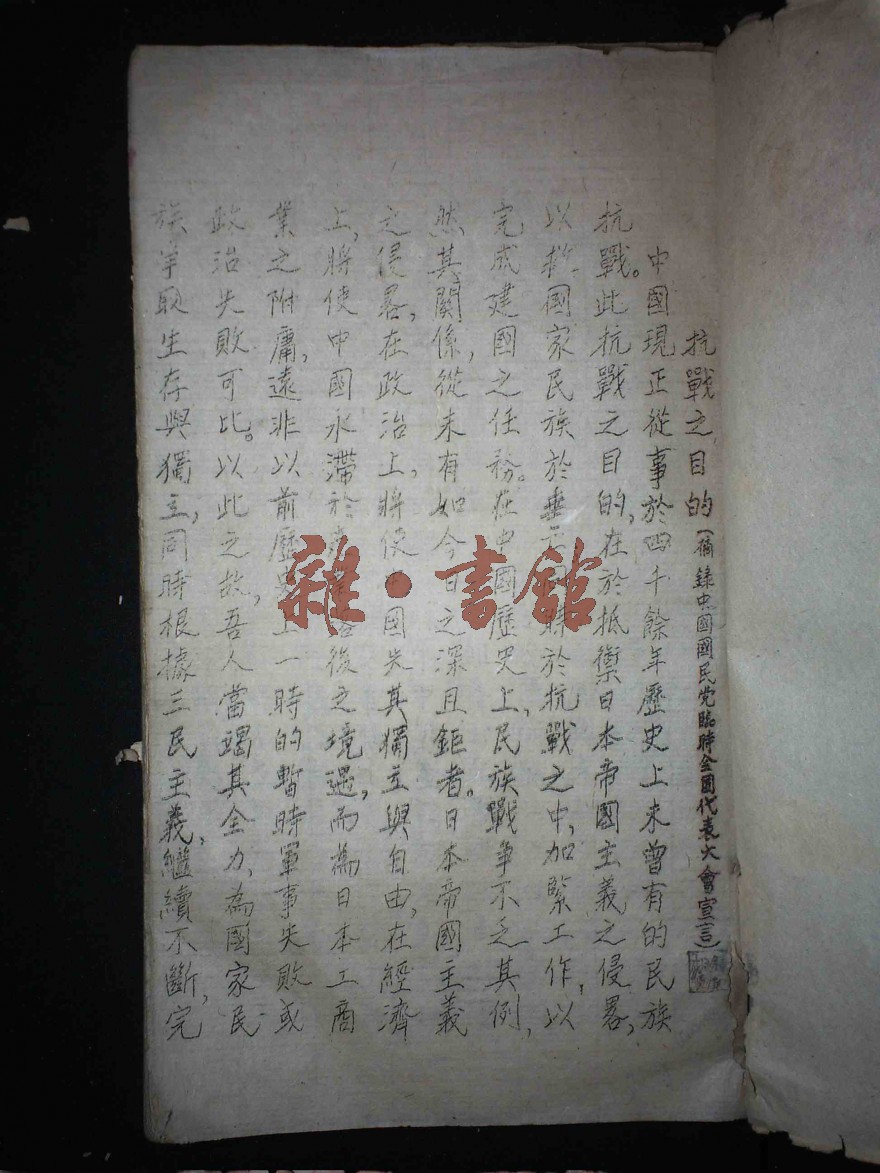 抗戰之目的(摘錄中國國民党臨時全國代表大會宣言)
中國現正從事於四千餘年歷史上未曾有的民族
抗戰。此抗戰之目的,在於抵禦日本帝國主義之侵畧,
以救國家民族於垂亡 於抗戰之中,加緊工作,以
完成建國之任務。在中國歷史上,民族戰爭不乏其例,
然其關係,從未有如今日之深且鉅者。日本帝國主義
之侵畧,在政治上,將使中國失其獨立與自由,在經濟
上,將使中國永滯於 後之境遇,而為日本工商
業之附庸,遠非以前歷史上一時的暫時軍事失敗或
政治失敗可比。以此之故,吾人當竭其全力,為國家民
族爭取生存與獨立,同時根據三民主義,繼續不斷,完
雜·書館